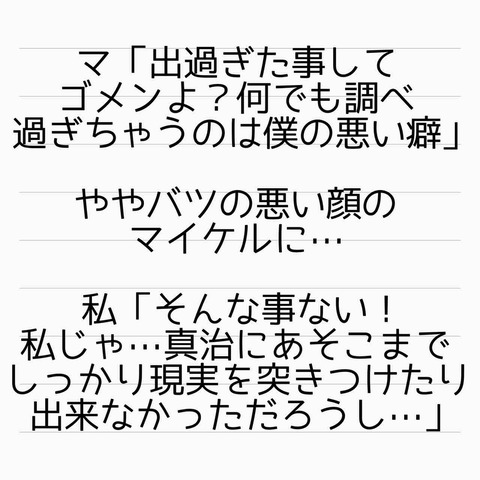 マ「出過ぎた事して
ゴメンよ？何でも調べ
過ぎちゃうのは僕の悪い癖」
ややバツの悪い顔の
マイケルに…
私「そんな事ない！
私じゃ…真治にあそこまで
しっかり現実を突きつけたり
出来なかっただろうし…」